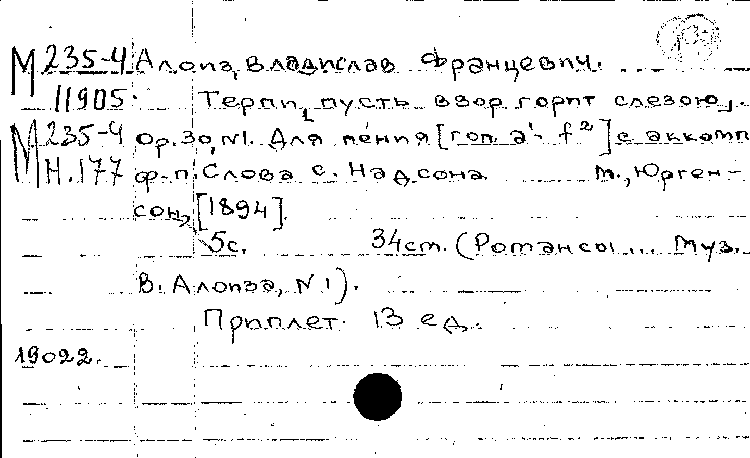 М 235-4 Алоиз, Владислав Францевич.
11905. Терпи, пусть взор горит слезою,
М 235-4 Ор. 30, N1. Для пения [гол. a¹- f²] с аккомп
Н.177 ф-п. Слова С. Надсона М., Юрген-
сон, [1894].
5с. 34см. (Романсы ... Муз.
В. Алоиза, N 1).
Приплет. 13 ед.
19022.